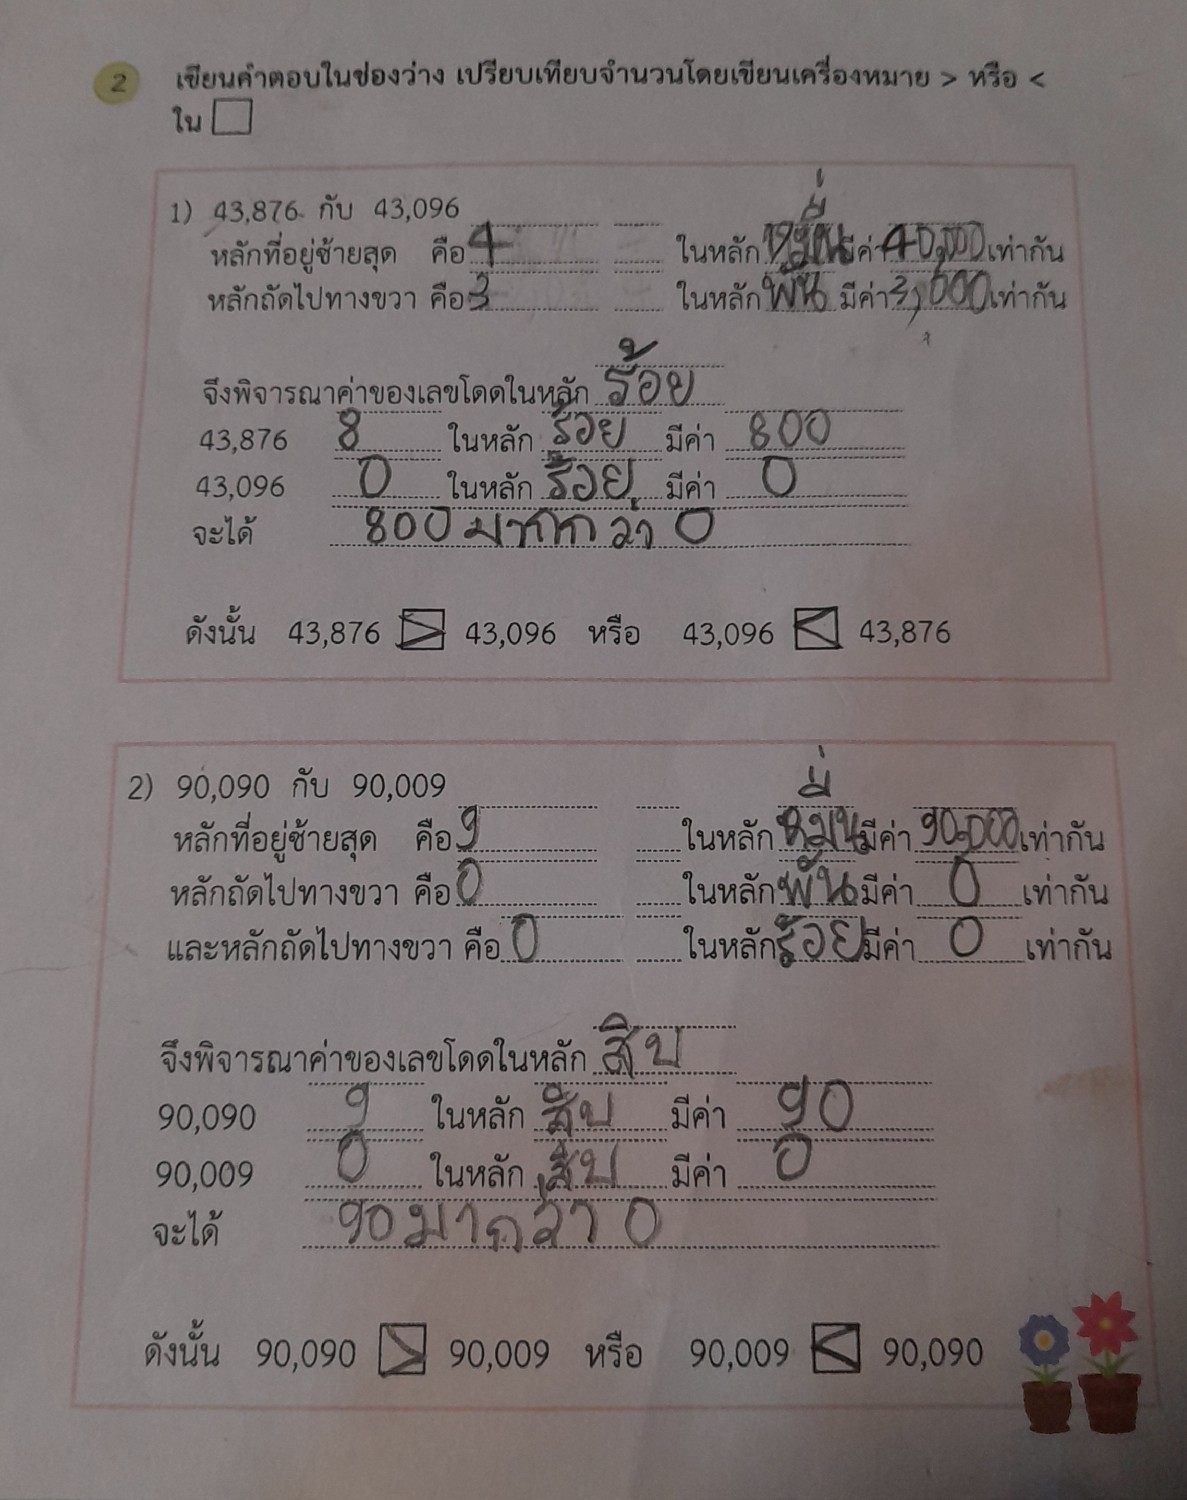 2 เขียนคำตอบในช่องว่าง เปรียบเทียบจำนวนโดยเขียนเครื่องหมาย > หรือ <
ใน □
1) 43,876 กับ 43,096
หลักที่อยู่ซ้ายสุด คือ 4 ในหลัก หมื่น มีค่า 40,000 เท่ากัน
หลักถัดไปทางขวา คือ 3 ในหลัก พัน มีค่า 3,000 เท่ากัน
จึงพิจารณาค่าของเลขโดดในหลัก ร้อย
43,876 8 ในหลัก ร้อย มีค่า 800
43,096 0 ในหลัก ร้อย มีค่า 0
จะได้ 800 มากกว่า 0
ดังนั้น 43,876 > 43,096 หรือ 43,096 < 43,876
2) 90,090 กับ 90,009
หลักที่อยู่ซ้ายสุด คือ 9 ในหลัก หมื่น มีค่า 90,000 เท่ากัน
หลักถัดไปทางขวา คือ 0 ในหลัก พัน มีค่า 0 เท่ากัน
และหลักถัดไปทางขวา คือ 0 ในหลัก ร้อย มีค่า 0 เท่ากัน
จึงพิจารณาค่าของเลขโดดในหลัก สิบ
90,090 9 ในหลัก สิบ มีค่า 90
90,009 0 ในหลัก สิบ มีค่า 0
จะได้ 90 มากว่า 0
ดังนั้น 90,090 > 90,009 หรือ 90,009 < 90,090